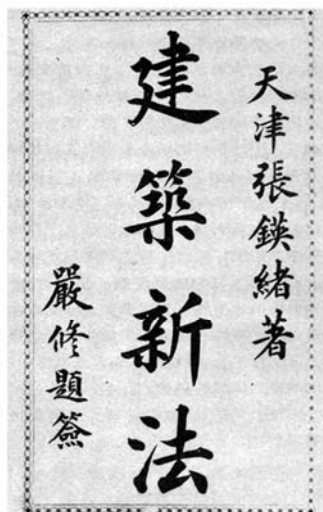 天津張鍈緒著
建築新法
嚴修題簽